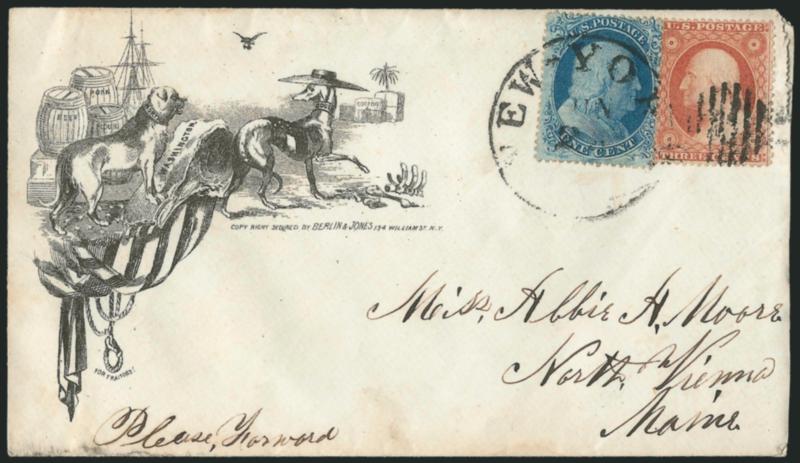 PORK
BEEF
WASHINGTON
COTTON
COPY RIGHT SECURED BY BERLIN & JONES 134 WILLIAM ST. N.Y.
FOR TRAITORS!
U.S. POSTAGE
ONE CENT
U.S. POSTAGE
THREE CENTS
NEW-YORK
JUN
Miss, Abbie H. Moore
North, Vienna
Maine.
Please, Forward